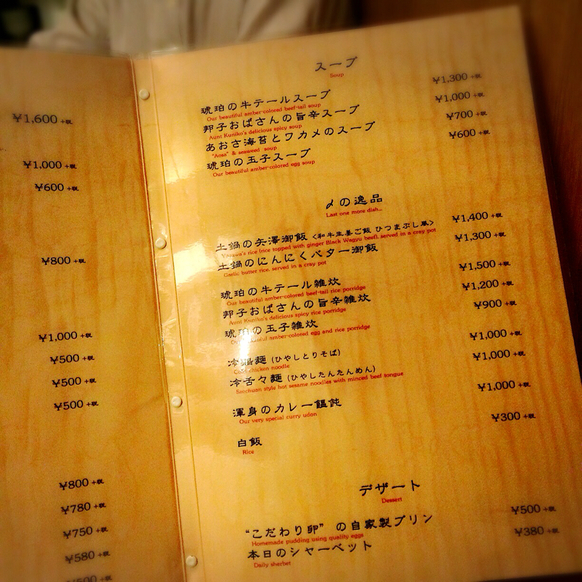 ¥1,600 +税
¥1,000 +税
¥600 +税
¥800 +税
¥1,000 +税
¥500 +税
¥500 +税
¥500 +税
¥800 +税
¥780 +税
¥750 +税
¥580 +税
スープ
Soup
琥珀の牛テールスープ ¥1,300 +税
Our beautiful amber-colored beef-tail soup
邦子おばさんの旨辛スープ ¥1,000 +税
Aunt Kuniko's delicious spicy soup
あおさ海苔とワカメのスープ ¥700 +税
"Aosa" & seaweed soup
琥珀の玉子スープ ¥600 +税
Our beautiful amber-colored egg soup
〆の逸品
Last one more dish...
土鍋の矢澤御飯 <和牛生姜ご飯 ひつまぶし風> ¥1,400 +税
Yazawa's rice topped with ginger Black Wagyu beef, served in a cray pot
土鍋のにんにくバター御飯 ¥1,300 +税
Garlic butter rice, served in a cray pot
琥珀の牛テール雑炊 ¥1,500 +税
Our beautiful amber-colored beef-tail rice porridge
邦子おばさんの旨辛雑炊 ¥1,200 +税
Aunt Kuniko's delicious spicy rice porridge
琥珀の玉子雑炊 ¥900 +税
beautiful amber-colored egg and rice porridge
冷鶏麺 (ひやしとりそば) ¥1,000 +税
chicken noodle
冷舌々麺 (ひやしたんたんめん) ¥1,000 +税
Szechuan style hot sesame noodles with minced beef tongue
渾身のカレー饂飩 ¥1,000 +税
Our very special curry udon
白飯 ¥300 +税
Rice
デザート
Dessert
"こだわり卵" の自家製プリン ¥500 +税
Homemade pudding using quality eggs
本日のシャーベット ¥380 +税
Daily sherbet